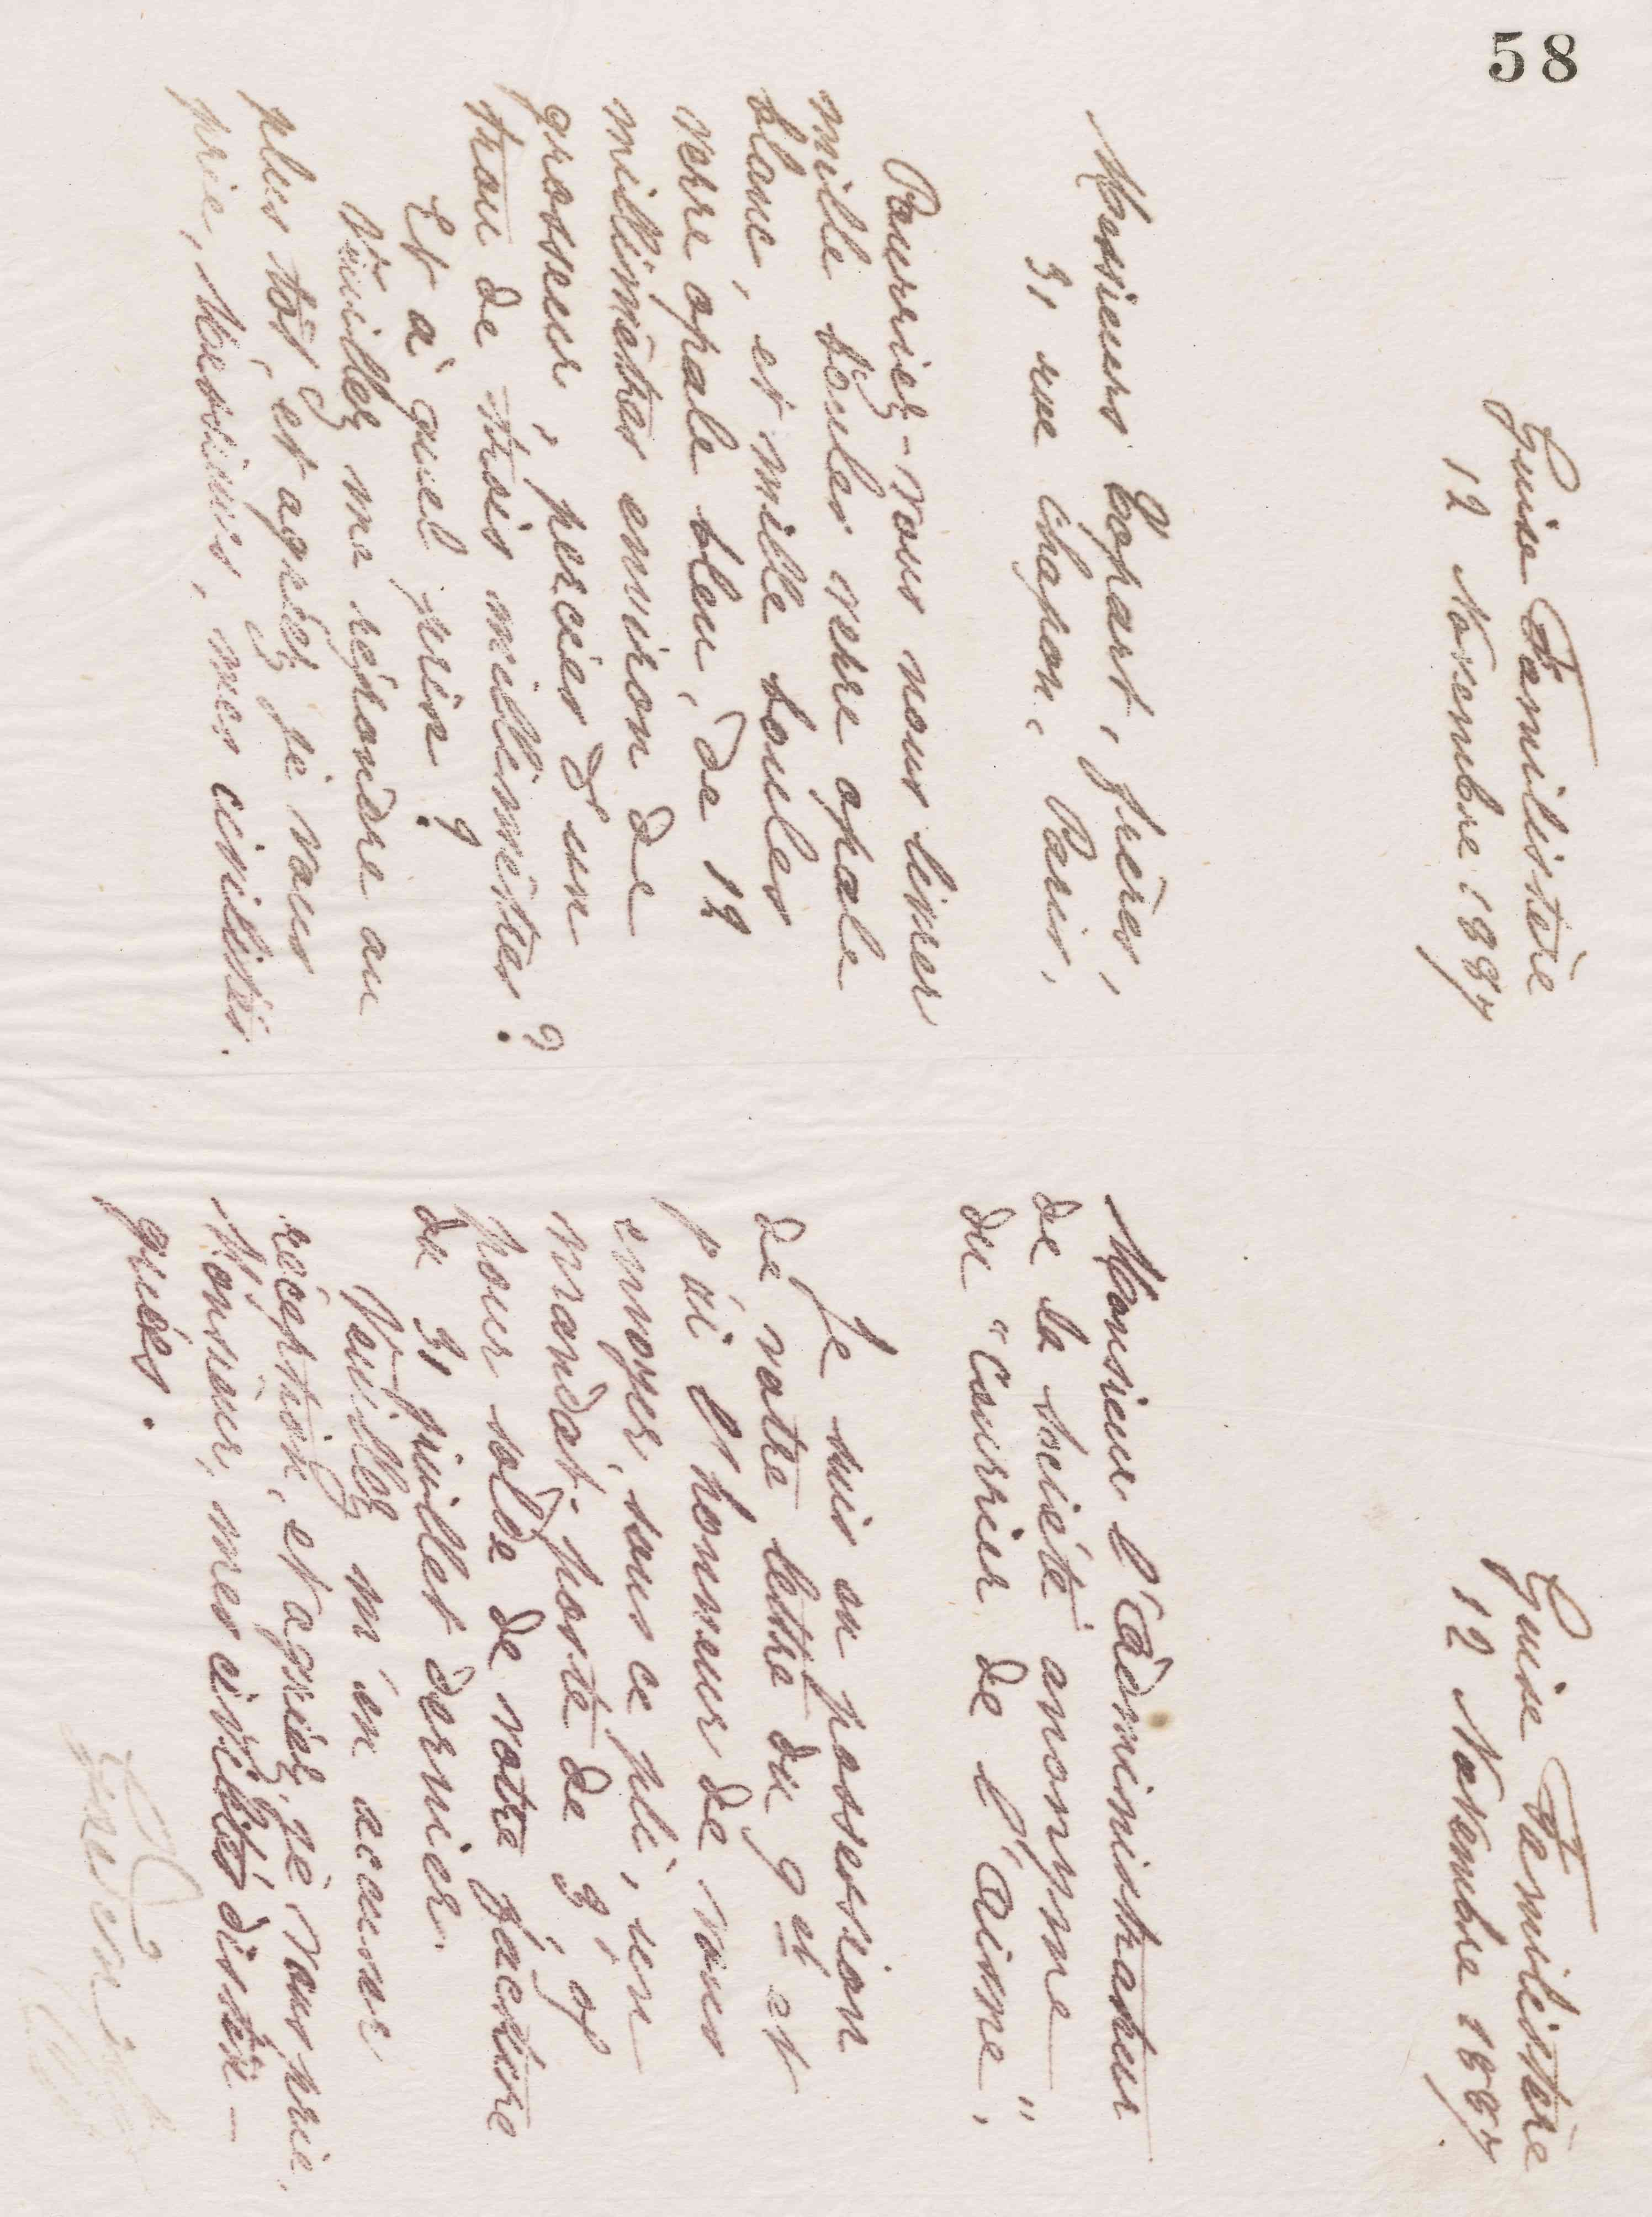 58
Guise Familistère
12 Novembre 1887
Messieurs Copart, frères,
31 rue Chapon, Paris.
Pourriez-vous nous livrer
mille boules verre opale
blanc, et mille boules
verre opale bleu, de 19
millimètres environ de
grosseur, percées d'un
trou de trois millimètres ?
Et à quel prix ?
Veuillez me répondre au
plus tôt, et agréez, je vous
prie, Messieurs, mes civilités.
Guise Familistère
12 Novembre 1887.
Monsieur l'Administrateur
de la Société anonyme
du "Courrier de l'Aisne".
Je suis en possession
de votre lettre du 9 ct et
j'ai l'honneur de vous
envoyer, sous ce pli, un
mandat-poste de
pour solde de votre facture
du 31 juillet dernier.
Veuillez m'en accuser
réception, et agréez, je vous prie,
Monsieur, mes civilités distin-
guées.
Godin